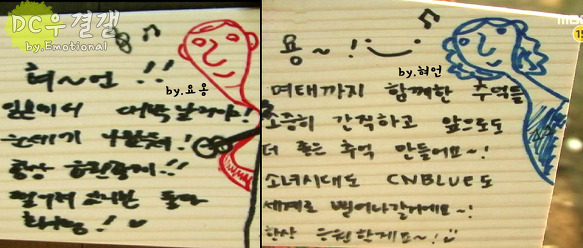 DC우결갤
by.Emotional
혀~언 !!
by.요옹
일본에서 대박날거야!
항상 응원할게!!
화이팅!
MBC
15
용~!
by.혀언
여태까지 함께한 추억들
소중히 간직하고 앞으로도
더 좋은 추억 만들어요~!
소녀시대도 CNBLUE도
세계로 뻗어나갈거에요~!
항상 응원할게요~!